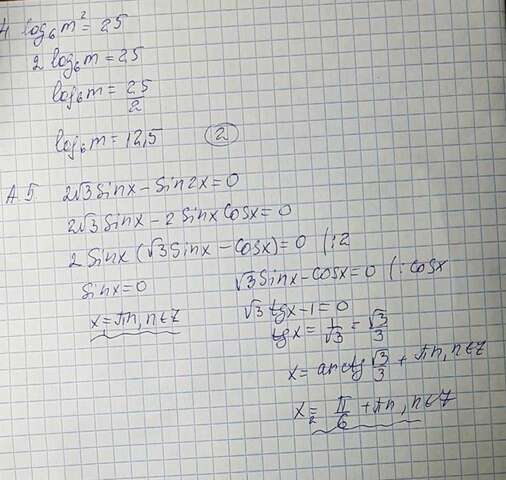 4 log₆m² = 25
2 log₆m = 25
log₆m = 25/2
log₆m = 12,5 (2)
A.5 2√3 Sinx - Sin2x = 0
2√3 Sinx - 2 Sinx Cosx = 0
2 Sinx (√3 Sinx - Cosx) = 0 (:2
Sinx = 0 √3 Sinx - Cosx = 0 (:Cosx
x = πn, n∈Z √3 tgx - 1 = 0
tgx = 1/√3 = √3/3
x = arctg √3/3 + πn, n∈Z
x₂ = π/6 + πn, n∈Z